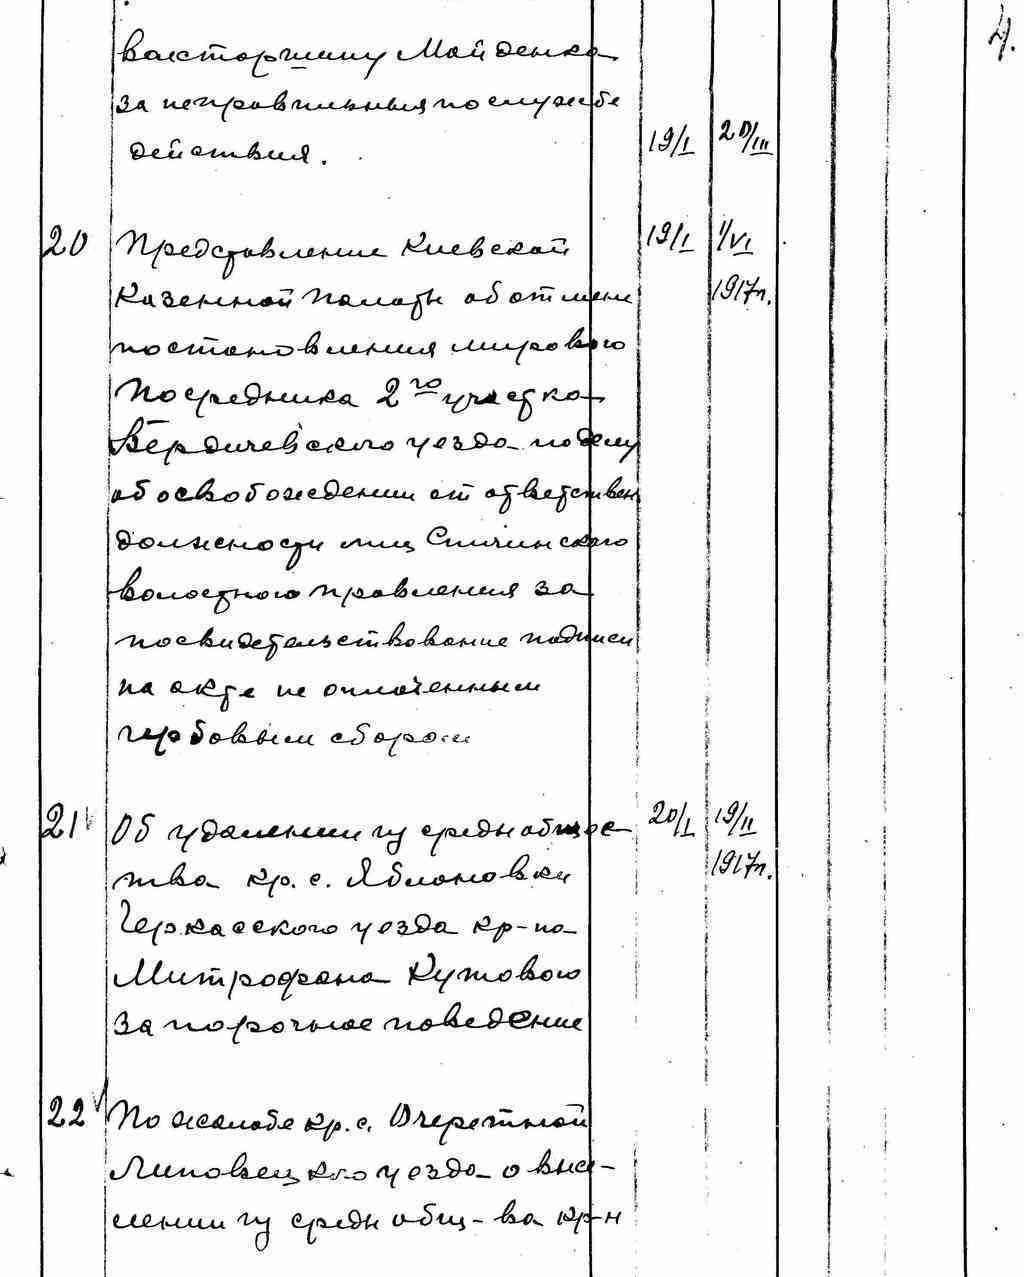 4.
вол. старшину Майденко
за неправильныя по службе
действия. 19/I 20/III
20 Представление Киевской 19/I 1/VI
Казенной Палаты об отмене 1917г.
постановления мирового
Посредника 2го участка
Бердичевского уезда по делу
об освобождении от ответствен
должности лиц Спичинского
волостного правления за
посвидетельствование подписи
на акте не оплаченным
гербовым сбором
21 Об удалении из среды общес- 20/I 19/II
тва кр. с. Яблоновки 1917г.
Черкасского уезда кр-на
Митрофана Кутового
за порочное поведение
22 По жалобе кр. с. Очеретной
Липовецкого уезда о высе-
лении из среды общ-ва кр-н